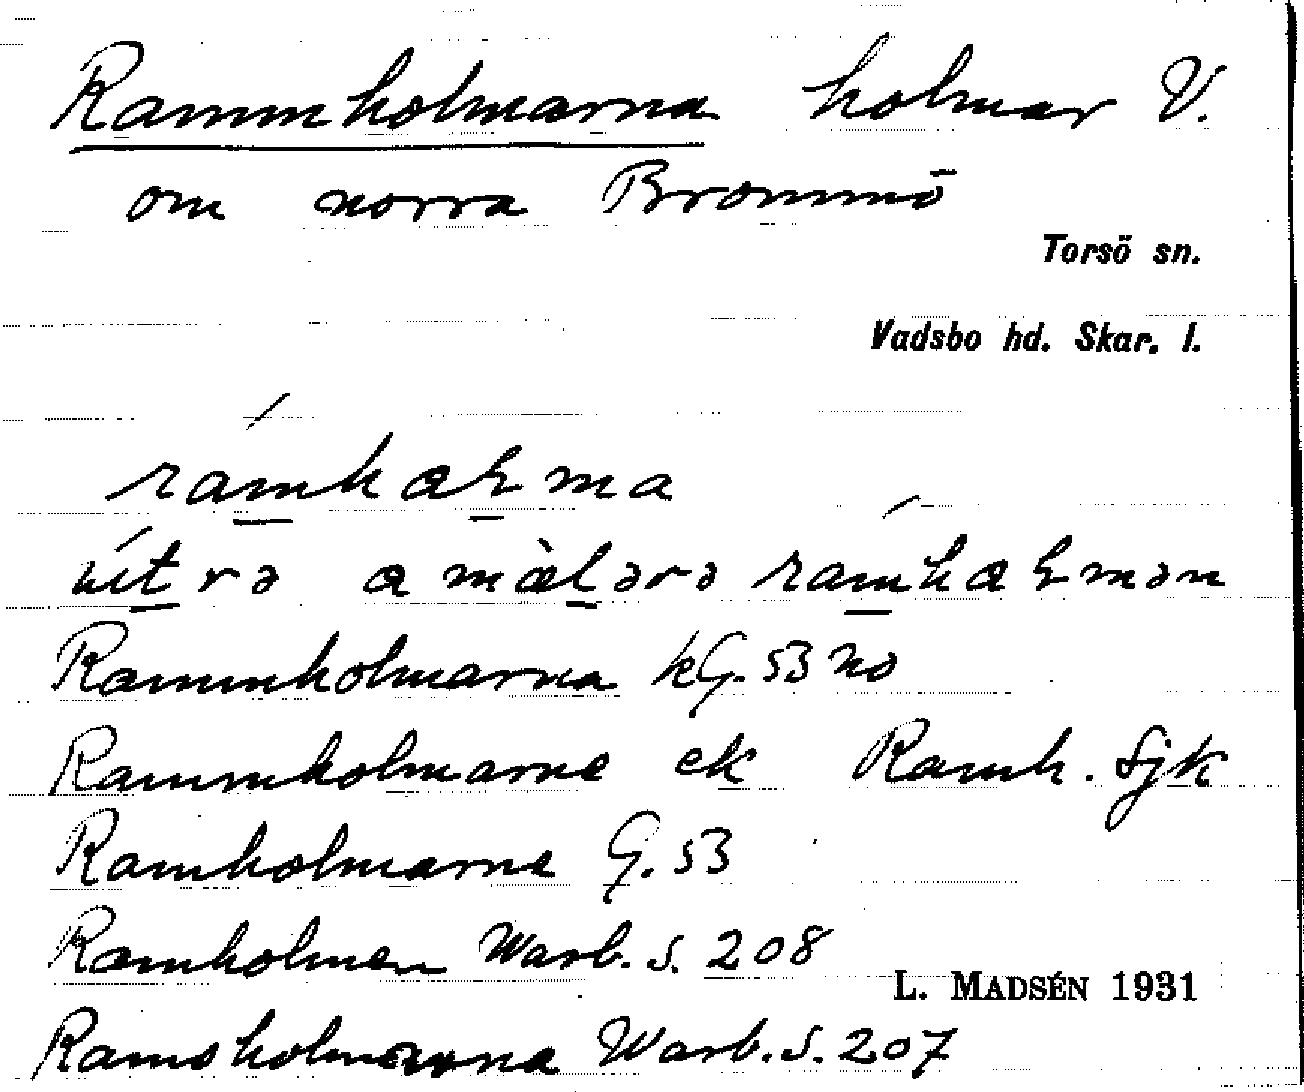 Rammholmarna holmar V.
om norra Brommö
Torsö sn.
Vadsbo hd. Skar. l.
Rammholmarna kG. 53 no
Rammholmarne ek Ramh. Sjk
Ramholmarne G. 53
Ramholmen Warb. s. 208
L. MADSÉN 1931
Ramsholmarna Warb. s. 207